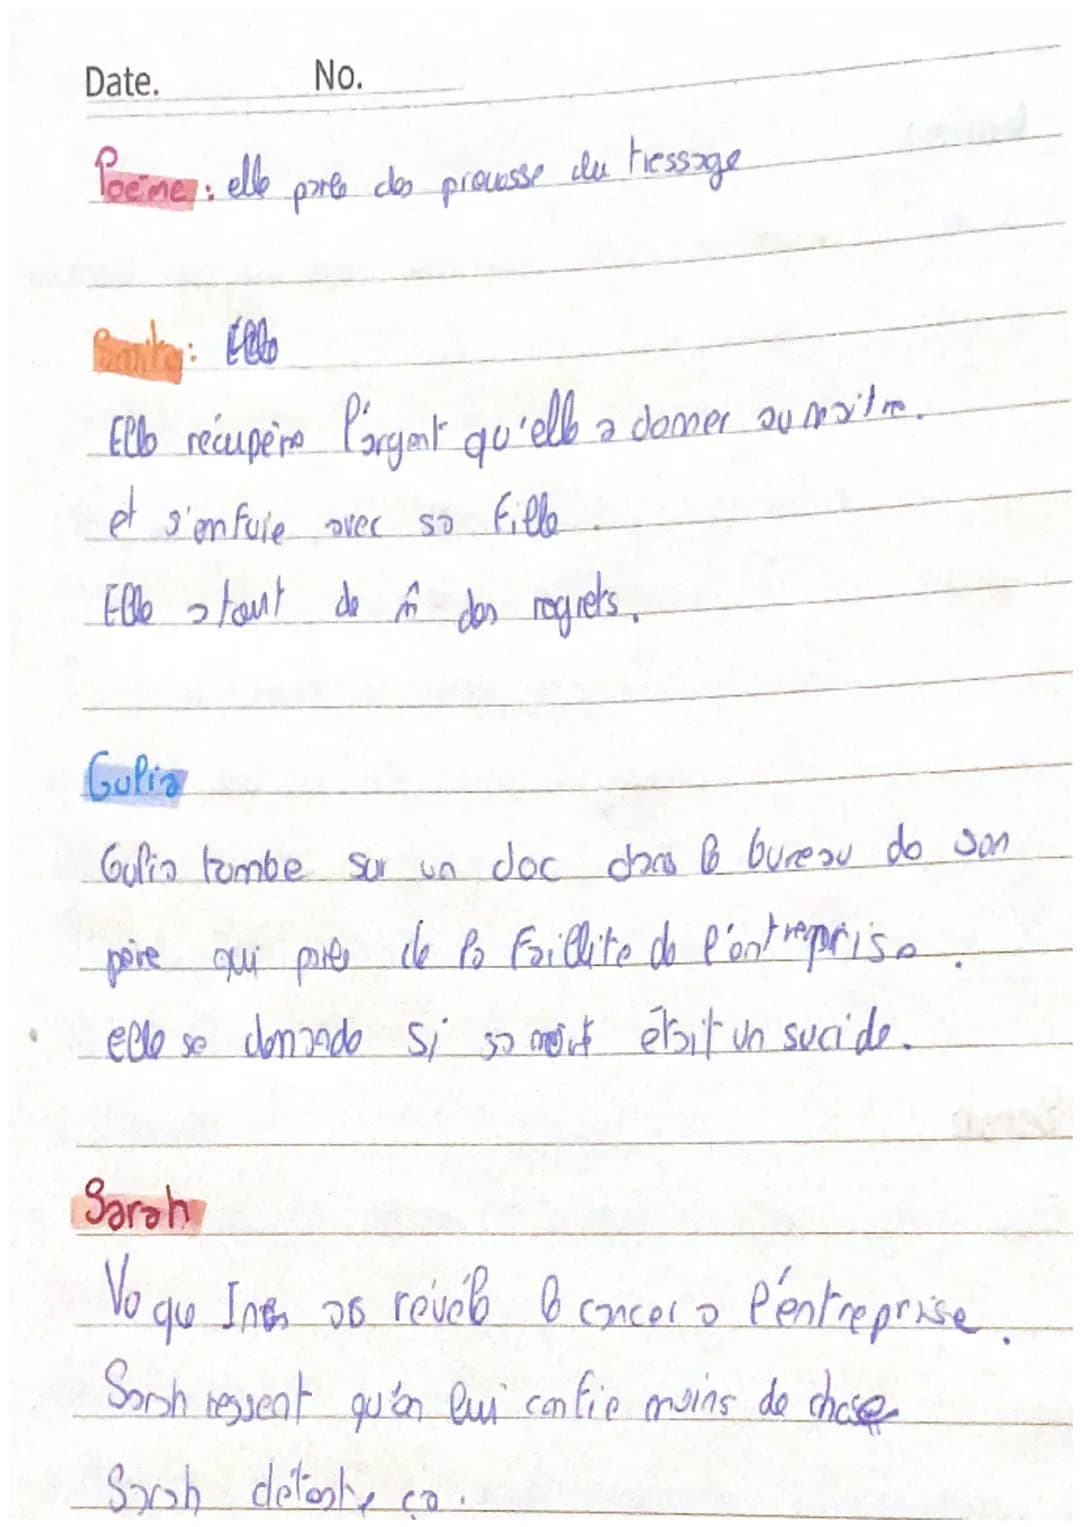 Date. No.
Poème : elle parle des prouesse du tressage
Smita : Elle
Elle récupère l'argent qu'elle a donner au maitre.
et s'enfuie avec sa fille.
Elle a tout de m̂ des regrets.
Gulia
Gulia tombe sur un doc dans le bureau de son
père qui parle de la faillite de l'entreprise.
elle se demande si sa mort était un sucide.
Sarah
Vo que Ines as révélé le cancer a l'entreprise.
Sarah ressent qu'on lui confie moins de chose
Sarah déteste ça.